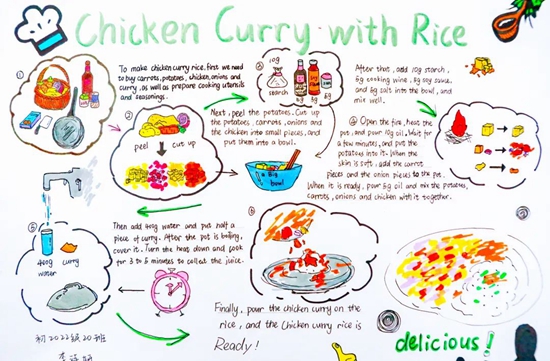 Chicken Curry with Rice
①
To make chicken curry rice, first we need
to buy carrots, potatoes, chicken, onions and
curry, as well as prepare cooking utensils
and seasonings.
②
peel
cut up
Next, peel the potatoes. Cut up
the potatoes, carrots, onions and
the chicken into small pieces, and
put them into a bowl.
③
10g
starch
6g
8g
6g
a big
bowl
After that, add 10g starch,
6g cooking wine, 8g soy sauce,
and 6g salt into the bowl, and
mix well.
④ Open the fire, heat the
pot, and pour 10g oil. Wait for
a few minutes, and put the
potatoes into it. When the
skin is soft, add the carrot
pieces and the onion pieces to the pot.
When it is ready, pour 6g oil and mix the potatoes,
carrots, onions and chicken with it together.
⑤
440g
water
curry
Then add 440g water and put half a
piece of curry. After the pot is boiling,
cover it. Turn the heat down and cook
for 3 to 5 minutes to collect the juice.
⑥
Finally, pour the chicken curry on the
rice, and the Chicken curry rice is
Ready!
delicious!
初2022级20班